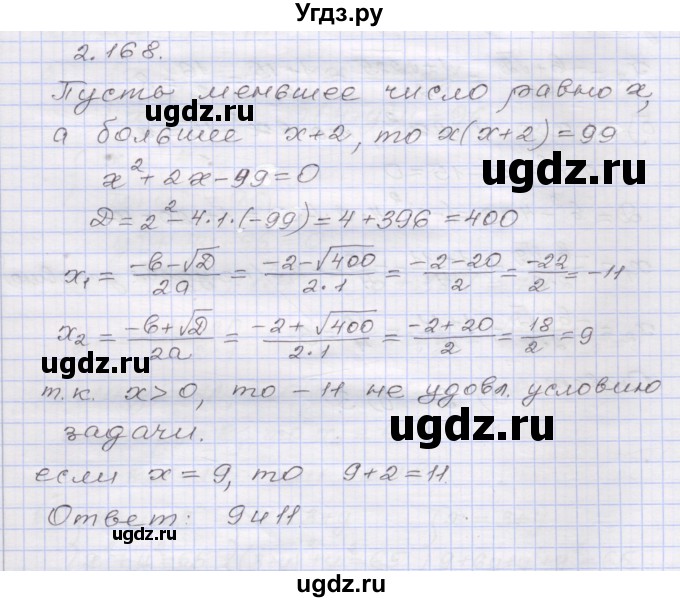 Угдз.ру
2.168.
Пусть меньшее число равно x,
а большее x+2, то x(x+2)=99
x²+2x-99=0
D=2²-4·1·(-99)=4+396=400
x₁ = (-b-√D)/2a = (-2-√400)/2·1 = (-2-20)/2 = -22/2 = -11
x₂ = (-b+√D)/2a = (-2+√400)/2·1 = (-2+20)/2 = 18/2 = 9
т.к. x>0, то -11 не удовл. условию
задачи.
если x=9, то 9+2=11
Ответ: 9 и 11
ugdz.ru
ugdz.ru
ugdz.ru
ugdz.ru
ugdz.ru
ugdz.ru
ugdz.ru
ugdz.ru